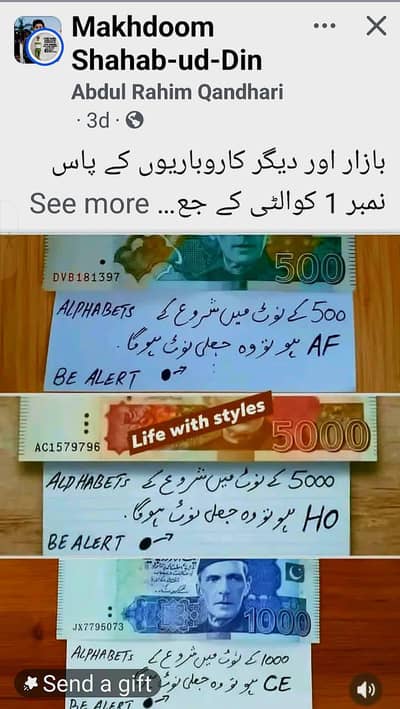 Makhdoom
Shahab-ud-Din
Abdul Rahim Qandhari
· 3d ·
بازار اور دیگر کاروباریوں کے پاس
نمبر 1 کوالٹی کے جع... See more
500
DVB181397
500 کے نوٹ میں شروع کے ALPHABETS
AF ہو تو وہ جعلی نوٹ ہوگا۔
BE ALERT
Life with styles
5000
AC1579796
5000 کے نوٹ میں شروع کے ALPHABETS
HO ہو تو وہ جعلی نوٹ ہوگا۔
BE ALERT
JX7795073
1000
1000 کے نوٹ میں شروع کے ALPHABETS
CE ہو تو وہ جعلی نوٹ
BE ALERT
Send a gift